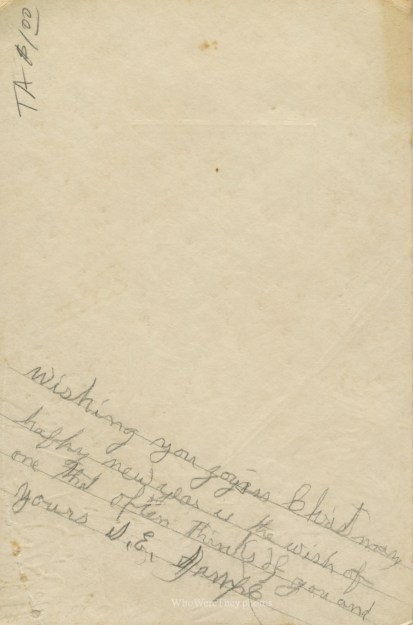 TA $1.00
Wishing you joyous Christmas
happy new year is the wish of
one that often thinks of you and
yours D. E.
WhoWereTheyPhotos